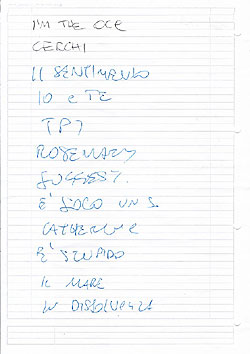 I'M THE OCE
CERCHI
IL SENTIMENTO
IO E TE
TP7
ROSEMARY
SUGGEST.
E' SOLO UN S.
CATHERINE
E' STUPIDO
IL MARE
IN DISSOLVENZA